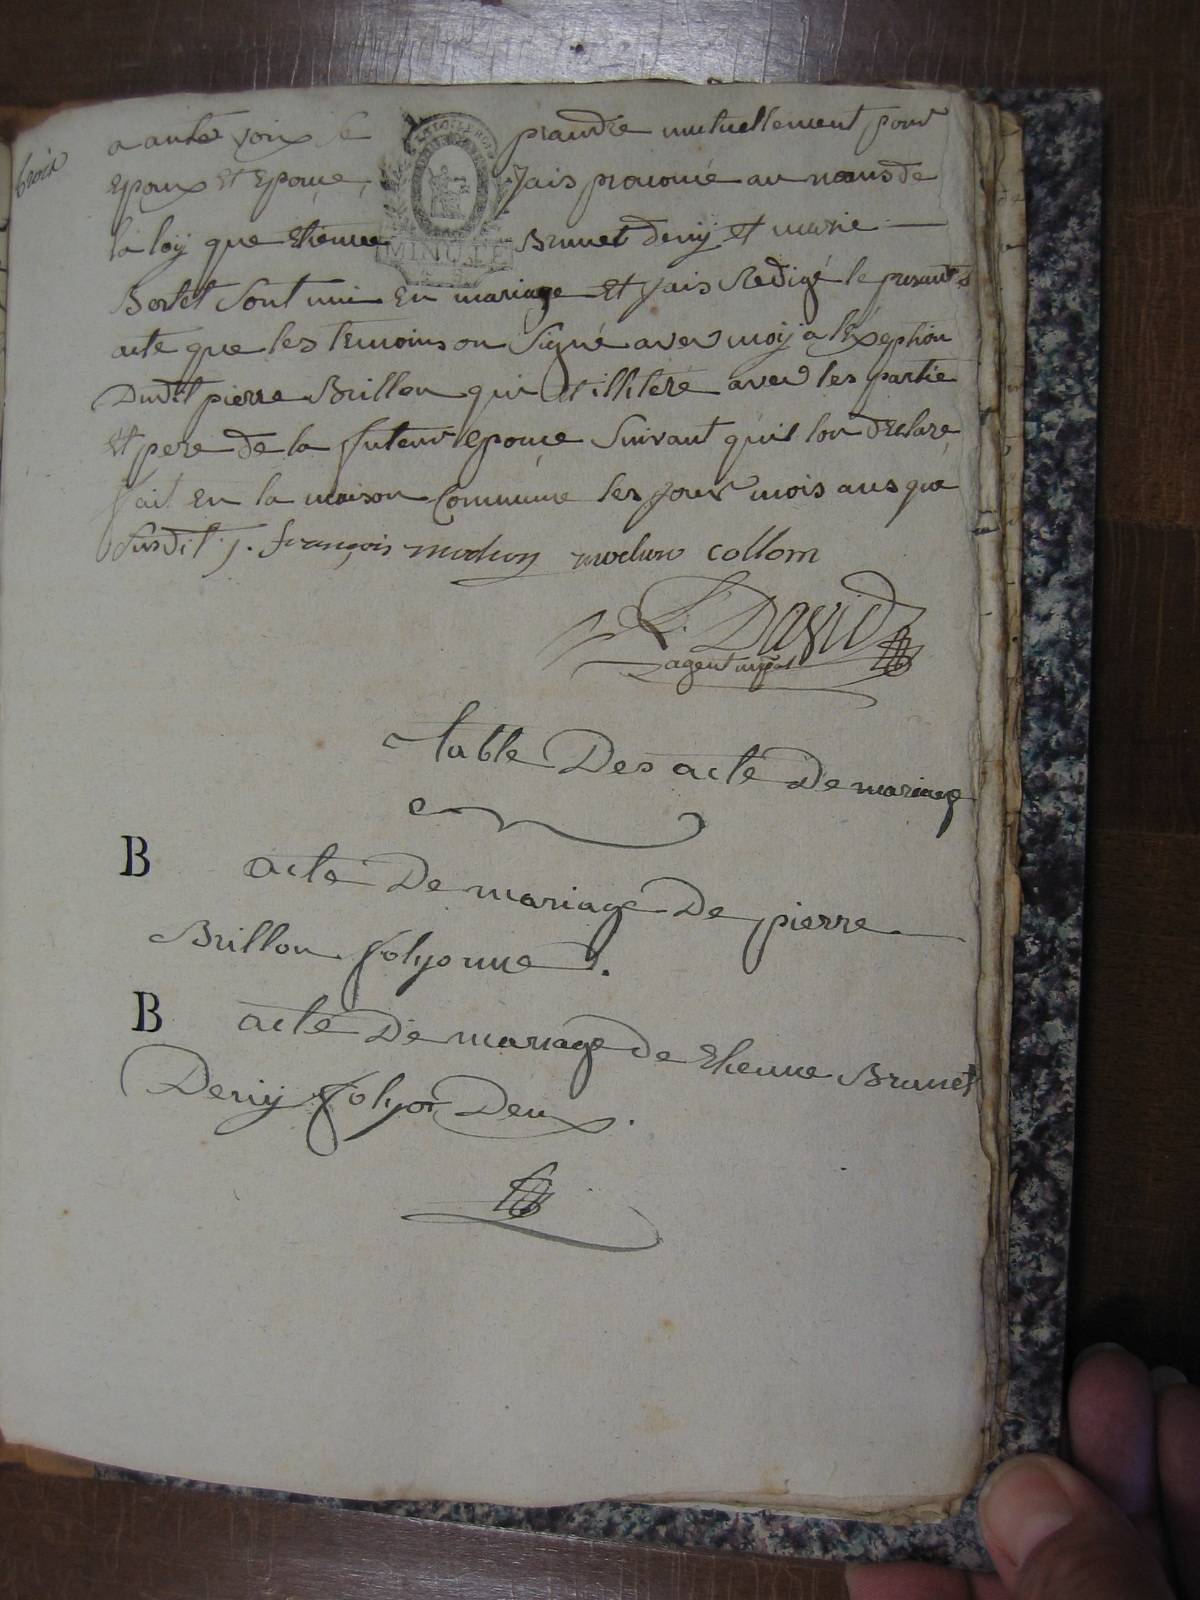 trois
a aute voix se prandre mutuellement pour
Epoux Et Epouce, Jais pronomcé au noms de
la loy que Etienne Brunet deny et marie
MINUTE
Bortet sont uni En mariage Et Jais Redigé le presant
acte que les temoins on signé avec moy a l'Exeption
Dudit pierre Brillon qui Et illiteré avec les partie
Et pere de la futeur epouce suivant quil lon declaré
fait En la maison Commune les jour mois ans que
susdit J. françois collom
David
agent
table Des acte De mariage
B acte De mariage De pierre
Brillon folyo une.
B acte De mariage de Etienne Brunet
Deny folyo Deux.